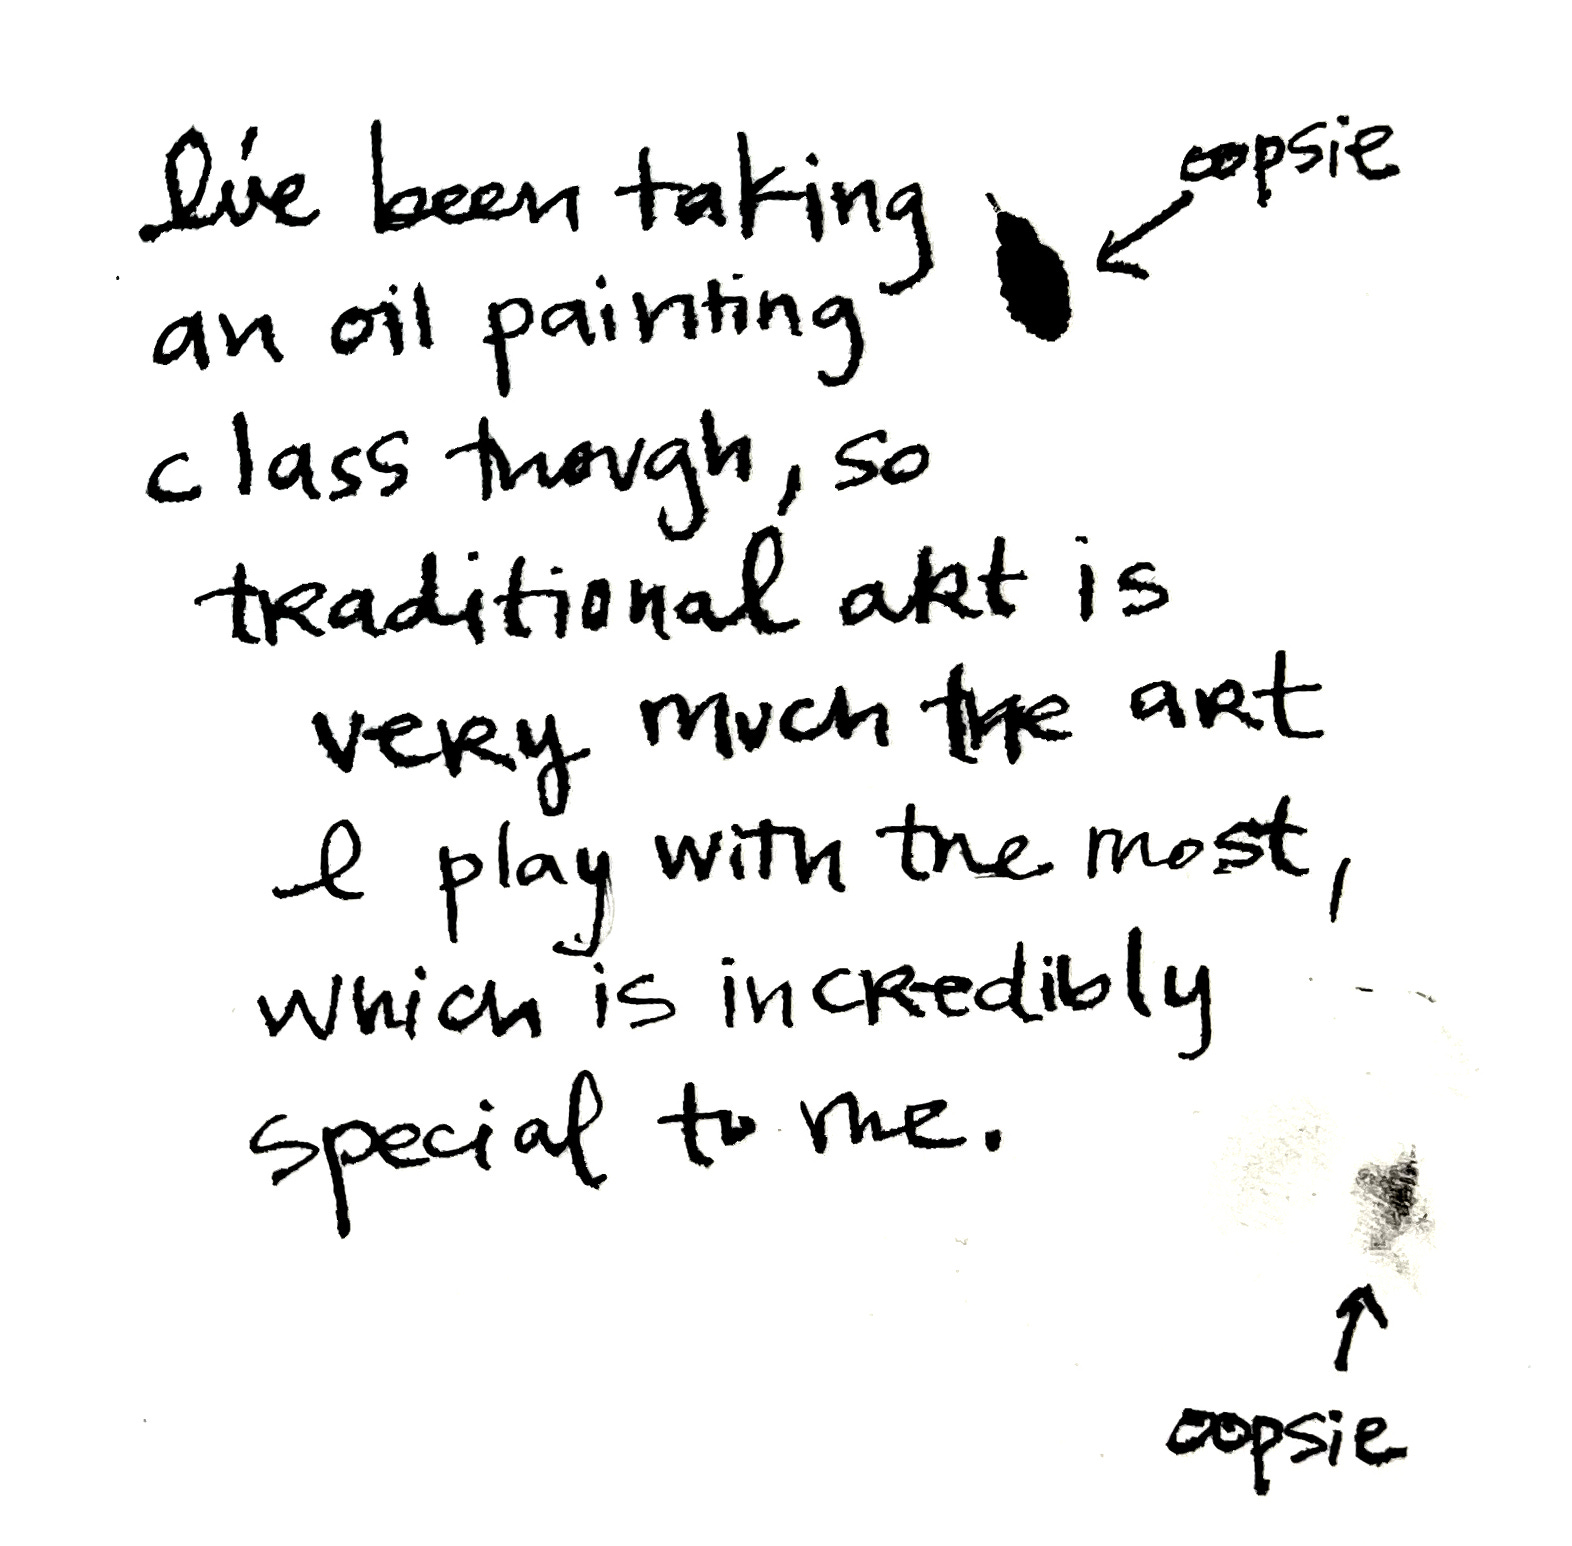 oopsie
I've been taking
an oil painting
class though, so
traditional art is
very much the art
I play with the most,
which is incredibly
special to me.
oopsie